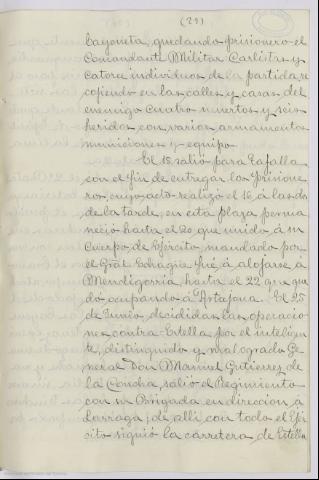 (29)
bayoneta, quedando prisionero el
Comandante Militar Carlista y
catorce individuos de la partida, re
cojiendo en las calles y casas del
enemigo cuatro muertos y seis
heridos con varios armamentos
municiones y equipo.
El 15 salió para Tafalla
con el fin de entregar los prisione
ros, cuyo acto realizó el 16 á las dos
de la tarde, en esta plaza perma
neció hasta el 20 que unido á su
Cuerpo de Ejército mandado por
el Gral Echagüe fué á alojarse á
Mendigorria hasta el 22 que que
dó ocupando á Artajona. El 25
de Junio decididas las operacio
nes contra Estella por el inteligen
te, distinguido y malogrado Ge
neral Don Manuel Gutierrez de
la Concha, salió el Regimiento
con su Brigada en direccion á
Larraga; de alli con todo el Ejér
cito siguió la carretera de Estella